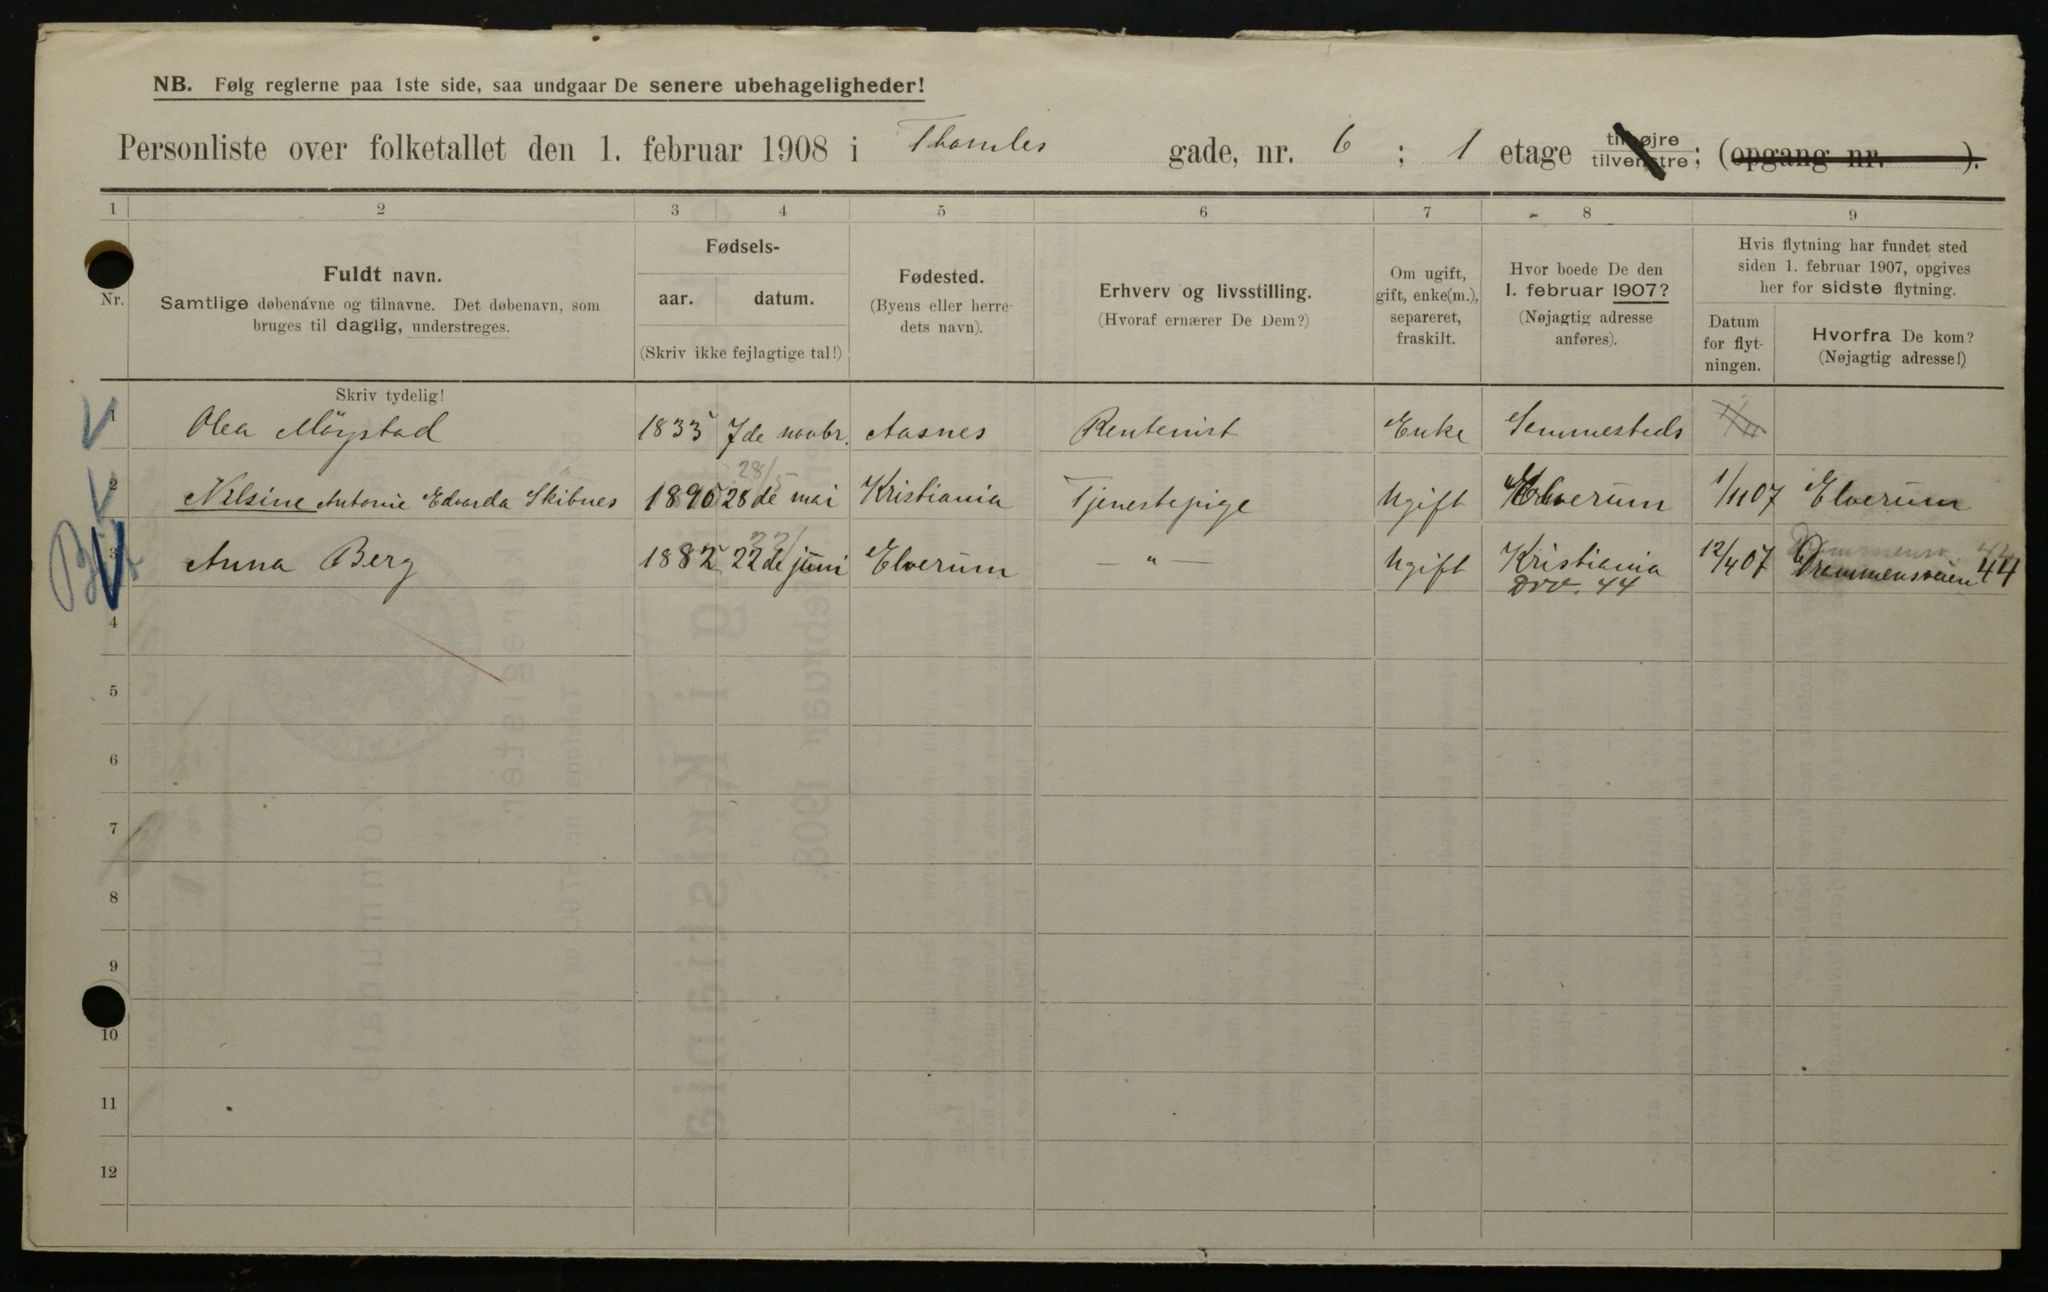 NB. Følg reglerne paa 1ste side, saa undgaar De senere ubehageligheder!
Personliste over folketallet den 1. februar 1908 i Thomles gade, nr. 6 ; 1 etage tilhøjre tilvenstre ; (opgang nr. ).
1 2 3 4 5 6 7 8 9
Nr.
Fuldt navn.
Samtlige døbenavne og tilnavne. Det døbenavn, som
bruges til daglig, understreges.
Skriv tydelig!
Fødsels-
aar. datum.
(Skriv ikke fejlagtige tal!)
Fødested.
(Byens eller herre-
dets navn).
Erhverv og livsstilling.
(Hvoraf ernærer De Dem?)
Om ugift,
gift, enke(m.),
separeret,
fraskilt.
Hvor boede De den
1. februar 1907?
(Nøjagtig adresse
anføres).
Hvis flytning har fundet sted
siden 1. februar 1907, opgives
her for sidste flytning.
Datum
for flyt-
ningen.
Hvorfra De kom?
(Nøjagtig adresse!)
1 Olea Möystad 1835 7de novbr. Aasnes Rentenist Enke Sammesteds
28/5
2 Nilsine Antonie Edvarda Skibnes 1890 28de mai Kristiania Tjenestepige Ugift Elverum 1/1107 Elverum
22/
3 Anna Berg 1882 22de juni Elverum — " — Ugift Kristiania 12/407 Drammensveien 44
Drv. 44
4
5
6
7
8
9
10
11
12